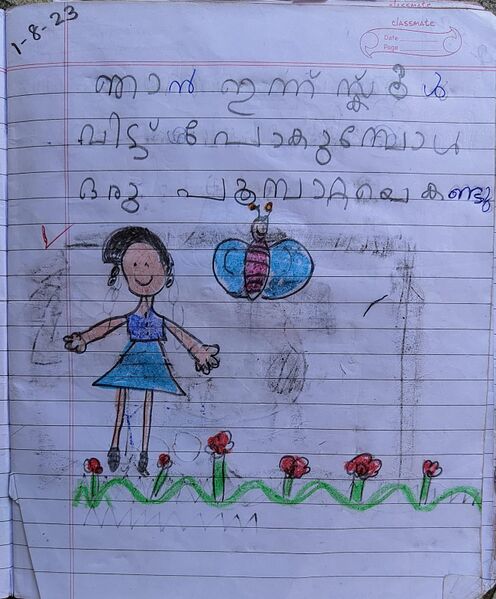 classmate
1-8-23
classmate
Date
Page
ഞാൻ ഇന്ന് സ്കൂൾ
വിട്ട് പോകുമ്പോൾ
ഒരു പൂമ്പാറ്റയെ കണ്ടു